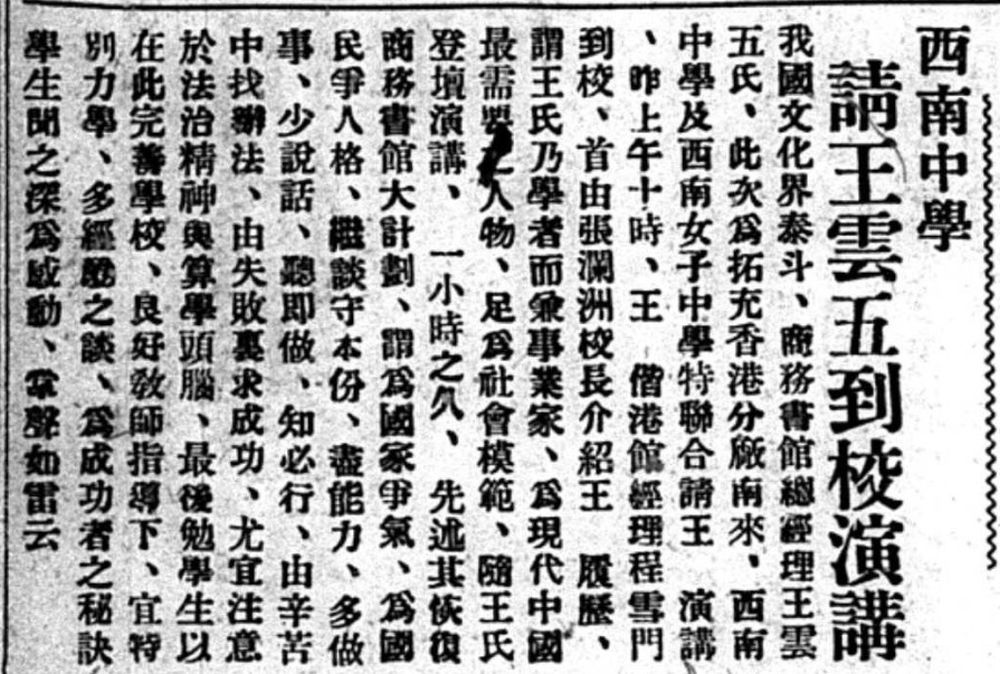 西南中學
請王雲五到校演講
我國文化界泰斗、商務書館總經理王雲
五氏、此次爲拓充香港分廠南來、西南
中學及西南女子中學特聯合請王　演講
、昨上午十時、王　偕港館經理程雪門
到校、首由張瀾洲校長介紹王　履歷、
謂王氏乃學者而兼事業家、爲現代中國
最需要之人物、足爲社會模範、隨王氏
登壇演講、　一小時之久、　先述其恢復
商務書館大計劃、謂爲國家爭氣、爲國
民爭人格、繼談守本份、盡能力、多做
事、少說話、聽即做、知必行、由辛苦
中找辦法、由失敗裏求成功、尤宜注意
於法治精神與算學頭腦、最後勉學生以
在此完善學校、良好敎師指導下、宜特
別力學、多經驗之談、爲成功者之秘訣
學生聞之深爲感動、掌聲如雷云